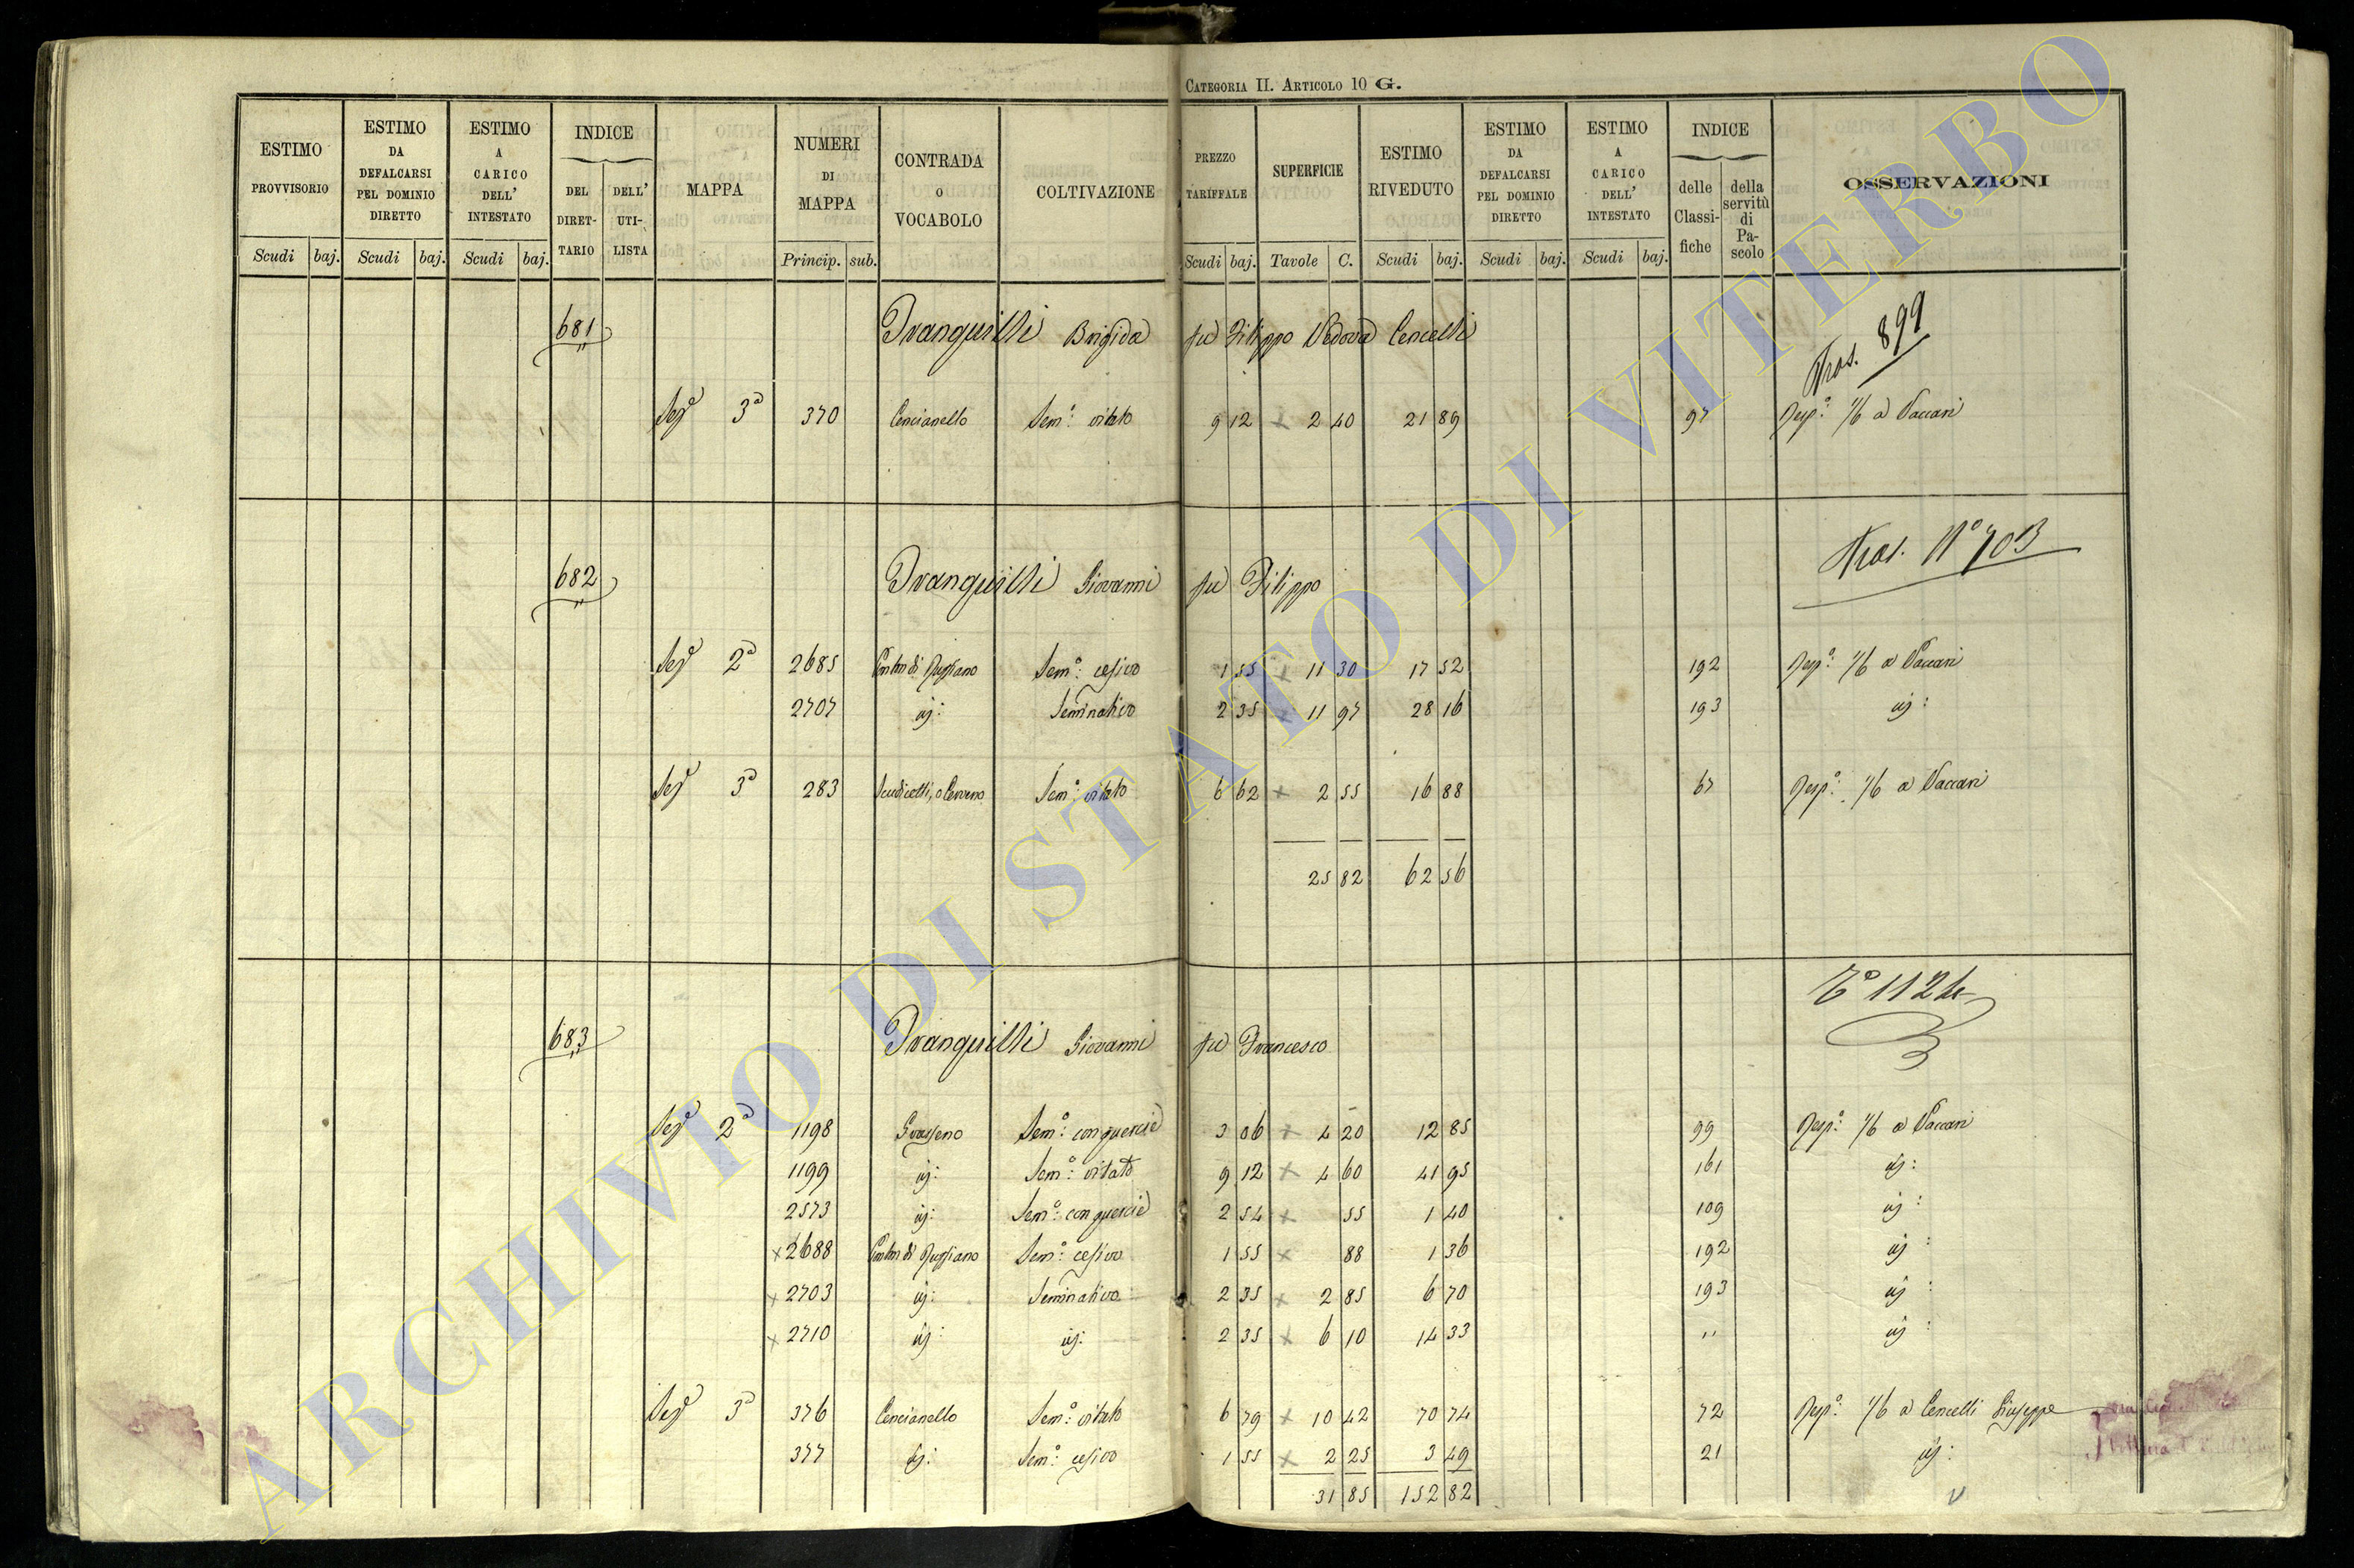 CATEGORIA II. ARTICOLO 10 G.
ESTIMO PROVVISORIO | ESTIMO DA DEFALCARSI PEL DOMINIO DIRETTO | ESTIMO A CARICO DELL' INTESTATO | INDICE | MAPPA | NUMERI DI MAPPA | CONTRADA O VOCABOLO | COLTIVAZIONE | PREZZO TARIFFALE | SUPERFICIE | ESTIMO RIVEDUTO | ESTIMO DA DEFALCARSI PEL DOMINIO DIRETTO | ESTIMO A CARICO DELL' INTESTATO | INDICE | OSSERVAZIONI
Scudi baj. | Scudi baj. | Scudi baj. | DEL DIRET-TARIO | DELL' UTI-LISTA | Princip. sub. | Scudi baj. | Tavole C. | Scudi baj. | Scudi baj. | Scudi baj. | delle Classi-fiche | della servitù di Pa-scolo
681 Tranquilli Brigida fu Filippo Vedova Cencelli Tras. 899
Sez.e 3a 370 Cencianello Sem.o: vitato 9 12 x 2 40 21 89 97 Resp.o: 1/6 a Vaccari
682 Tranquilli Giovanni fu Filippo Tras. No 703
Sez.e 2a 2685 di Sem.o: cesivo 1 55 x 11 30 17 52 192 Resp.o: 1/6 a Vaccari
2707 iij: Seminativo 2 35 x 11 97 28 16 193 iij:
Sez.e 3a 283 Sem.o: vitato 6 62 x 2 55 16 88 67 Resp.o: 1/6 a Vaccari
25 82 62 56
683 Tranquilli Giovanni fu Francesco To 1124
Sez.e 2a 1198 Sem.o: con quercie 3 06 x 4 20 12 85 99 Resp.o: 1/6 a Vaccari
1199 iij: Sem.o: vitato 9 12 x 4 60 41 95 161 iij:
2573 iij: Sem.o: con quercie 2 54 x 55 1 40 109 iij:
x 2688 di Sem.o: cesivo 1 55 x 88 1 36 192 iij:
x 2703 iij: Seminativo 2 35 x 2 85 6 70 193 iij:
x 2710 iij: iij: 2 35 x 6 10 14 33 " iij:
Sez.e 3a 376 Cencianello Sem.o: vitato 6 79 x 10 42 70 74 72 Resp.o: 1/6 a Cencelli Giuseppe
377 iij: Sem.o: cesivo 1 55 x 2 25 3 49 21 iij:
31 85 152 82
ARCHIVIO DI STATO DI VITERBO